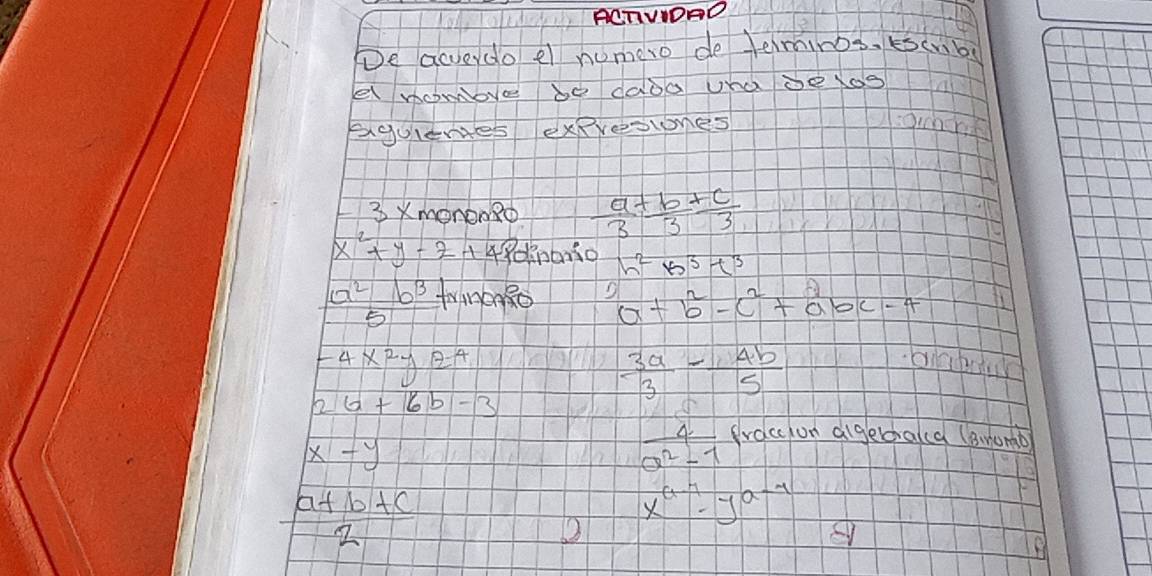 ACTIVIDAD
De acuerdo el numero de terminos. Escribe
el nombre de cada una de los
siguientes expresiones
- 3 x monomio
x² + y - z + 4 Polinomio
a² b³ / 5 trinomio
- 4 x² y z⁴
2a + 6b - 3
x - y
a + b + c / 2
a / 3 + b / 3 + c / 3
h² b³ t³
a + b² - c² + abc - 4
3a / 3 - 4b / 5
4 / a² - 1 fraccion algebraica (Binomio)
x^a-1 - y^a-1